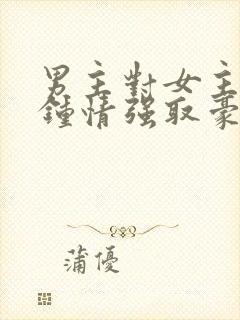 男主對女主
鍾情強取豪
蒲優